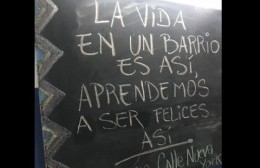 LA VIDA
EN UN BARRIO
ES ASÍ,
APRENDEMOS
A SER FELICES
ASÍ
Calle Nueva